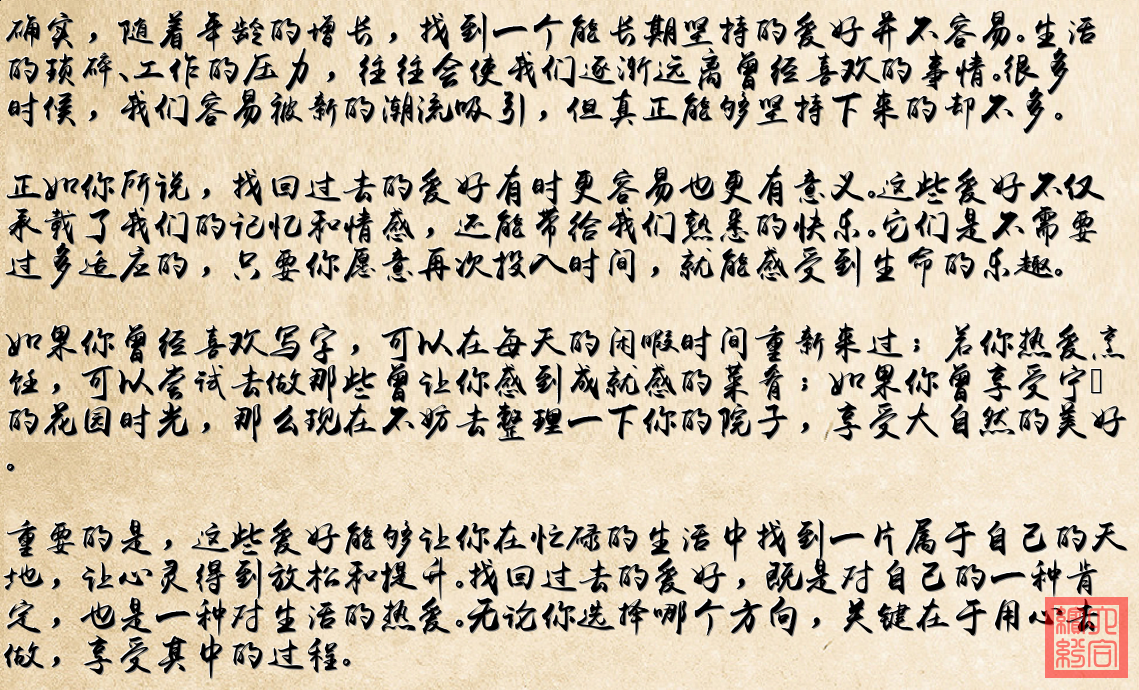 确实，随着年龄的增长，找到一个能长期坚持的爱好并不容易。生活
的琐碎、工作的压力，往往会使我们逐渐远离曾经喜欢的事情。很多
时候，我们容易被新的潮流吸引，但真正能够坚持下来的却不多。
正如你所说，找回过去的爱好有时更容易也更有意义。这些爱好不仅
承载了我们的记忆和情感，还能带给我们熟悉的快乐。它们是不需要
过多适应的，只要你愿意再次投入时间，就能感受到生命的乐趣。
如果你曾经喜欢写字，可以在每天的闲暇时间重新来过；若你热爱烹
饪，可以尝试去做那些曾让你感到成就感的菜肴；如果你曾享受宁
的花园时光，那么现在不妨去整理一下你的院子，享受大自然的美好
。
重要的是，这些爱好能够让你在忙碌的生活中找到一片属于自己的天
地，让心灵得到放松和提升。找回过去的爱好，既是对自己的一种肯
定，也是一种对生活的热爱。无论你选择哪个方向，关键在于用心去
做，享受其中的过程。